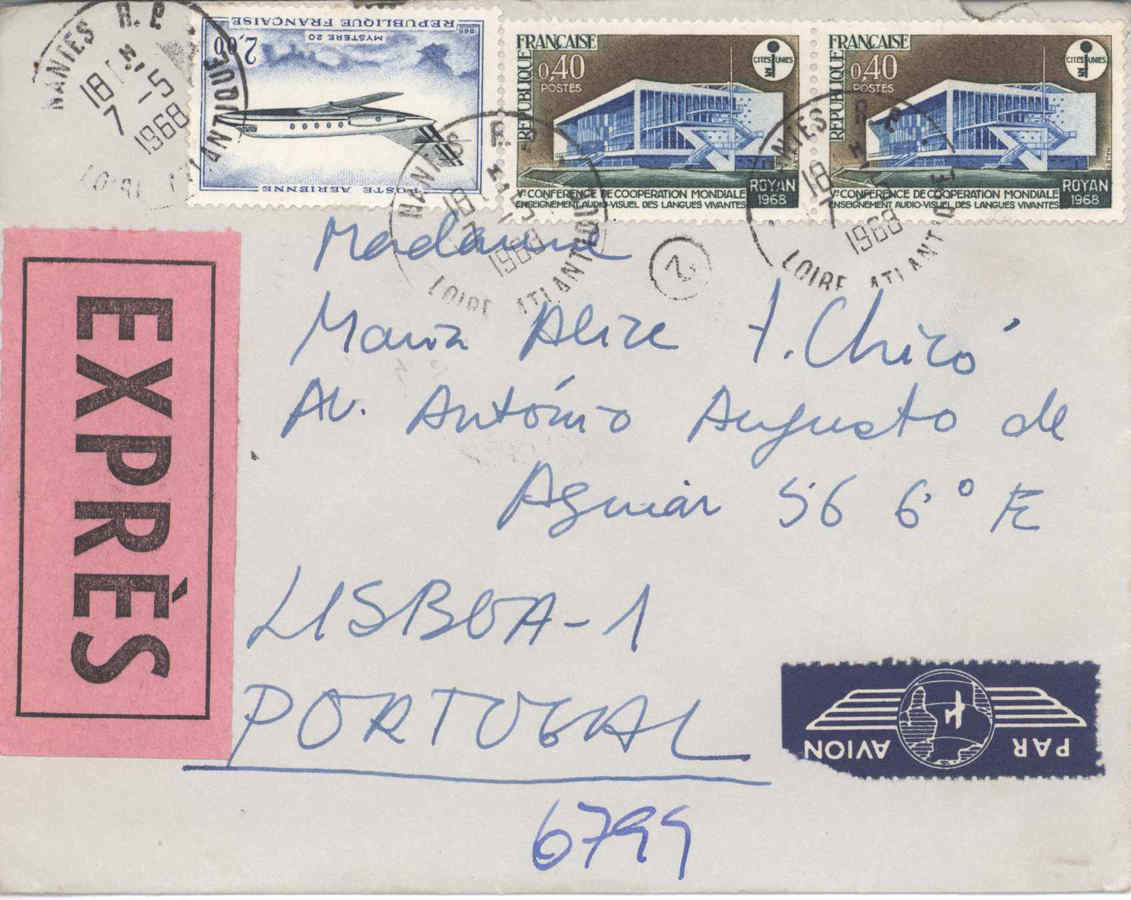 NANTES R. P.
18 H
7 - 5
1968
LOIRE ATLANTIQUE
1965 REPUBLIQUE FRANÇAISE
MYSTERE 20
2,00
POSTE AERIENNE
REPUBLIQUE FRANÇAISE
0,40
POSTES
CITES UNIES
Ve CONFERENCE DE COOPERATION MONDIALE
ENSEIGNEMENT AUDIO-VISUEL DES LANGUES VIVANTES
ROYAN
1968
REPUBLIQUE FRANÇAISE
0,40
POSTES
CITES UNIES
Ve CONFERENCE DE COOPERATION MONDIALE
ENSEIGNEMENT AUDIO-VISUEL DES LANGUES VIVANTES
ROYAN
1968
NANTES R. P.
18 H
7 - 5
1968
LOIRE ATLANTIQUE
NANTES R. P.
18 H
7
1968
LOIRE ATLANTIQUE
2
EXPRÈS
Madame
Maria Alice T. Chicó
Av. António Augusto de
Aguiar 56 6º E
LISBOA-1
PORTUGAL
PAR AVION
6799